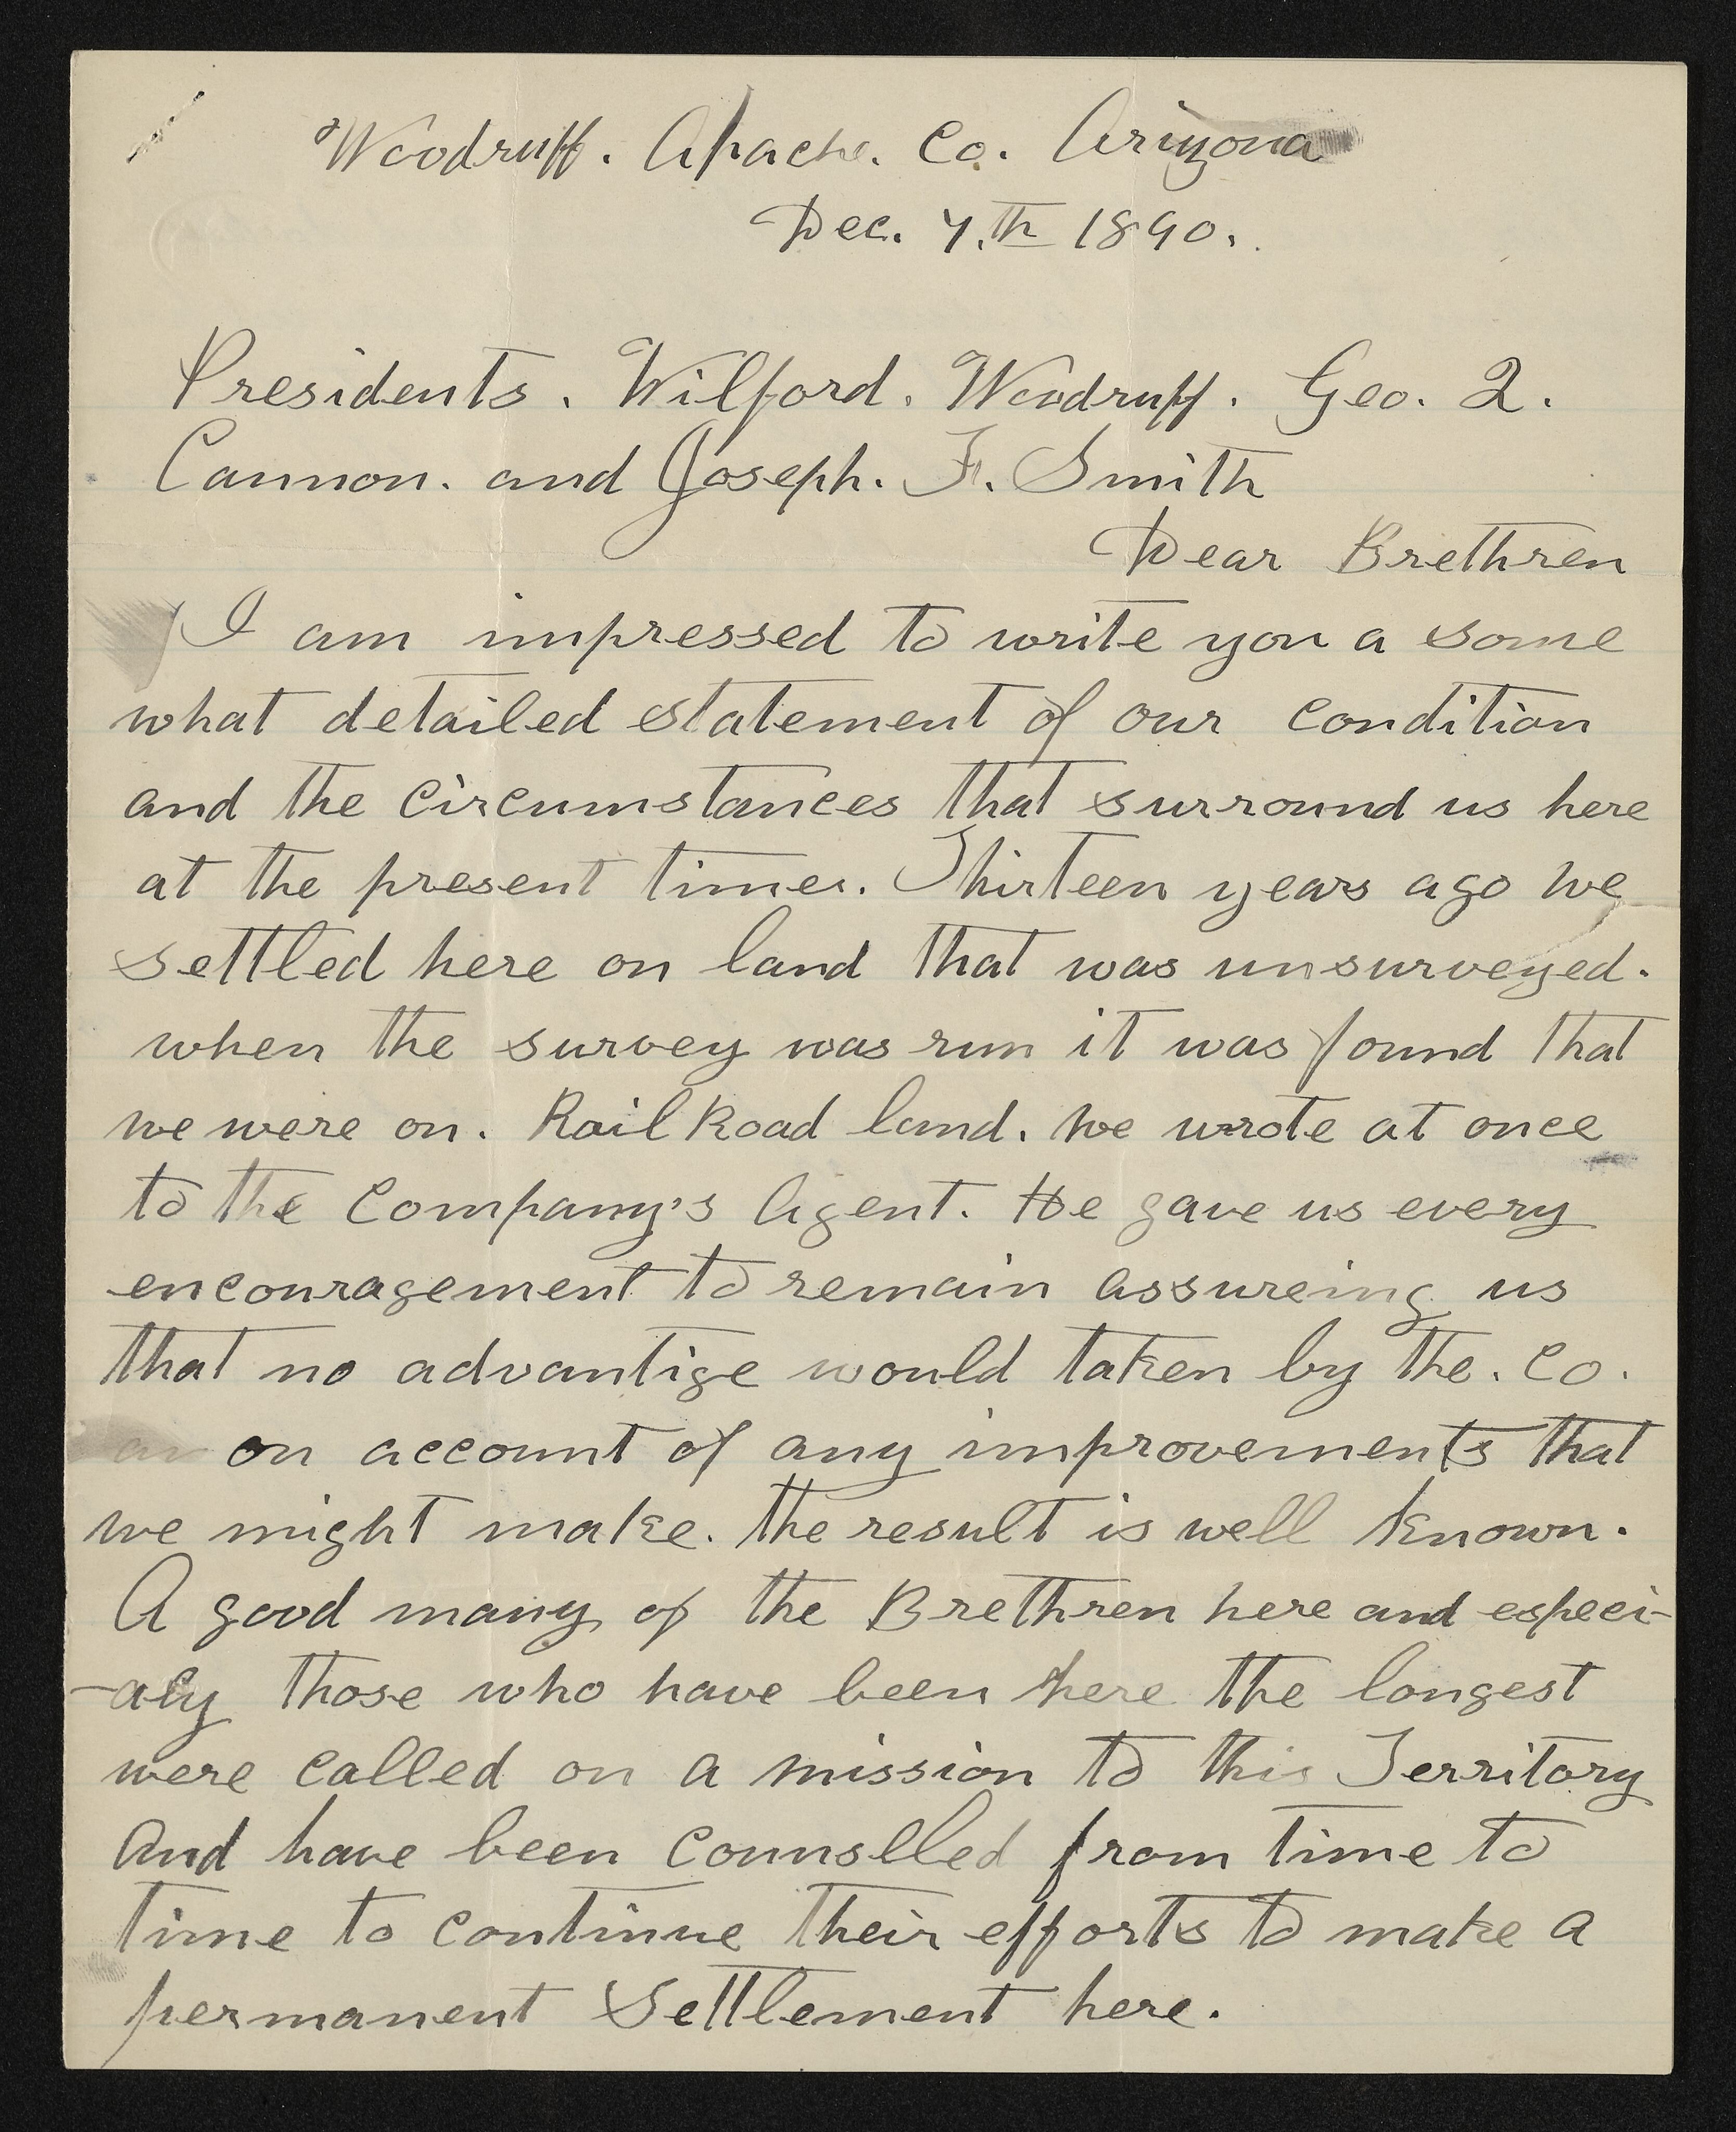 Woodruff. Apache. Co. Arizona
Dec. 7.th 1890.
Presidents. Wilford. Woodruff. Geo. Q.
Cannon. and Joseph. F. Smith
Dear Brethren
I am impressed to write you a some
what detailed statement of our condition
and the circumstances that surround us here
at the present times. Thirteen years ago we
settled here on land that was unsurveyed.
when the survey was run it was found that
we were on. Rail Road land. we wrote at once
to the Company's Agent. He gave us every
encouragement to remain assureing us
that no advantige would taken by the. Co.
on account of any improvements that
we might make. the result is well known.
A good many of the Brethren here and especi-
-aly those who have been here the longest
were called on a mission to this Territory
and have been counslled from time to
time to continue their efforts to make a
permanent Settlement here.